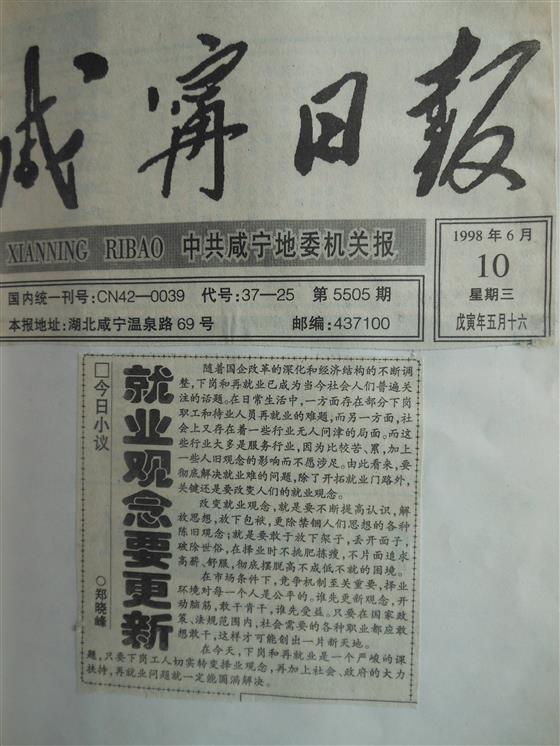 咸宁日报
XIANNING RIBAO 中共咸宁地委机关报
国内统一刊号:CN42—0039 代号:37—25 第5505期
本报地址:湖北咸宁温泉路69号 邮编:437100
1998年6月
10
星期三
戊寅年五月十六
□今日小议
就业观念要更新
○郑晓峰
随着国企改革的深化和经济结构的不断调
整,下岗和再就业已成为当今社会人们普遍关
注的话题。在日常生活中,一方面存在部分下岗
职工和待业人员再就业的难题,而另一方面,社
会上又存在着一些行业无人问津的局面。而这
些行业大多是服务行业,因为比较苦、累,加上
一些人旧观念的影响而不愿涉足。由此看来,要
彻底解决就业难的问题,除了开拓就业门路外,
关键还是要改变人们的就业观念。
改变就业观念,就是要不断提高认识,解
放思想,放下包袱,更除禁锢人们思想的各种
陈旧观念;就是要敢于放下架子,丢开面子,
破除世俗,在择业时不挑肥拣瘦,不片面追求
高薪、舒服,彻底摆脱高不成低不就的困境。
在市场条件下,竞争机制至关重要,择业
环境对每一个人是公平的。谁先更新观念,开
动脑筋,敢干肯干,谁先受益。只要在国家政
策、法规范围内,社会需要的各种职业都应敢
想敢干,这样才可能创出一片新天地。
在今天,下岗和再就业是一个严峻的课
题,只要下岗工人切实转变择业观念,再加上社会、政府的大力
扶持,再就业问题就一定能圆满解决。